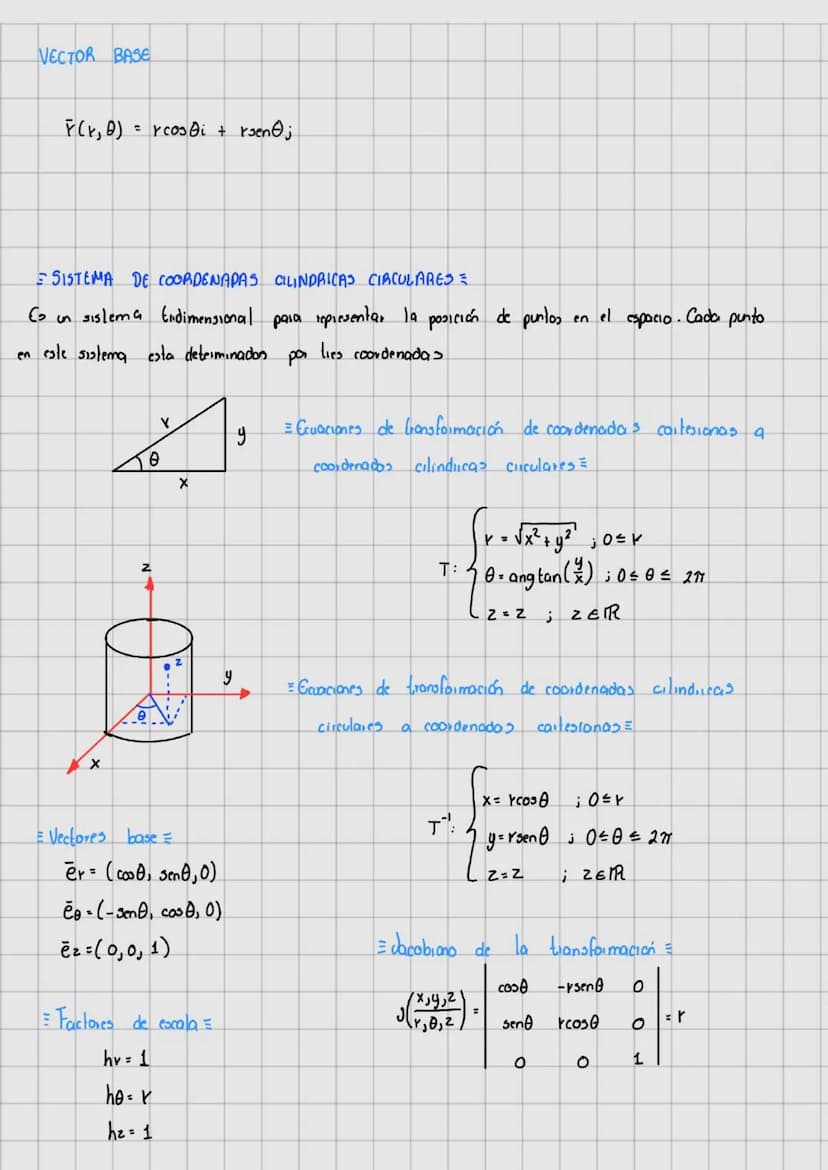 VECTOR BASE
r̄(r,θ) = rcosθi + rsenθj
≡ SISTEMA DE COORDENADAS CILINDRICAS CIRCULARES ≡
Es un sistema tridimensional para representar la posición de puntos en el espacio. Cada punto
en este sistema esta determinados por tres coordenadas
r
y
θ
x
≡ Ecuaciones de transformación de coordenadas cartesianas a
coordenadas cilindricas circulares ≡
T: { r = √x² + y² ; 0 ≤ r
θ = ang tan(y/x) ; 0 ≤ θ ≤ 2π
z = z ; z ∈ ℝ
z
z
y
θ
x
≡ Ecuaciones de transformación de coordenadas cilindricas
circulares a coordenadas cartesianas ≡
T⁻¹: { x = rcosθ ; 0 ≤ r
y = rsenθ ; 0 ≤ θ ≤ 2π
z = z ; z ∈ ℝ
≡ Vectores base ≡
ēr = (cosθ, senθ, 0)
ēθ = (-senθ, cosθ, 0)
ēz = (0, 0, 1)
≡ Jacobiano de la transformación ≡
J(x,y,z / r,θ,z) = | cosθ -rsenθ 0 |
| senθ rcosθ 0 | = r
| 0 0 1 |
≡ Factores de escala ≡
hr = 1
hθ = r
hz = 1